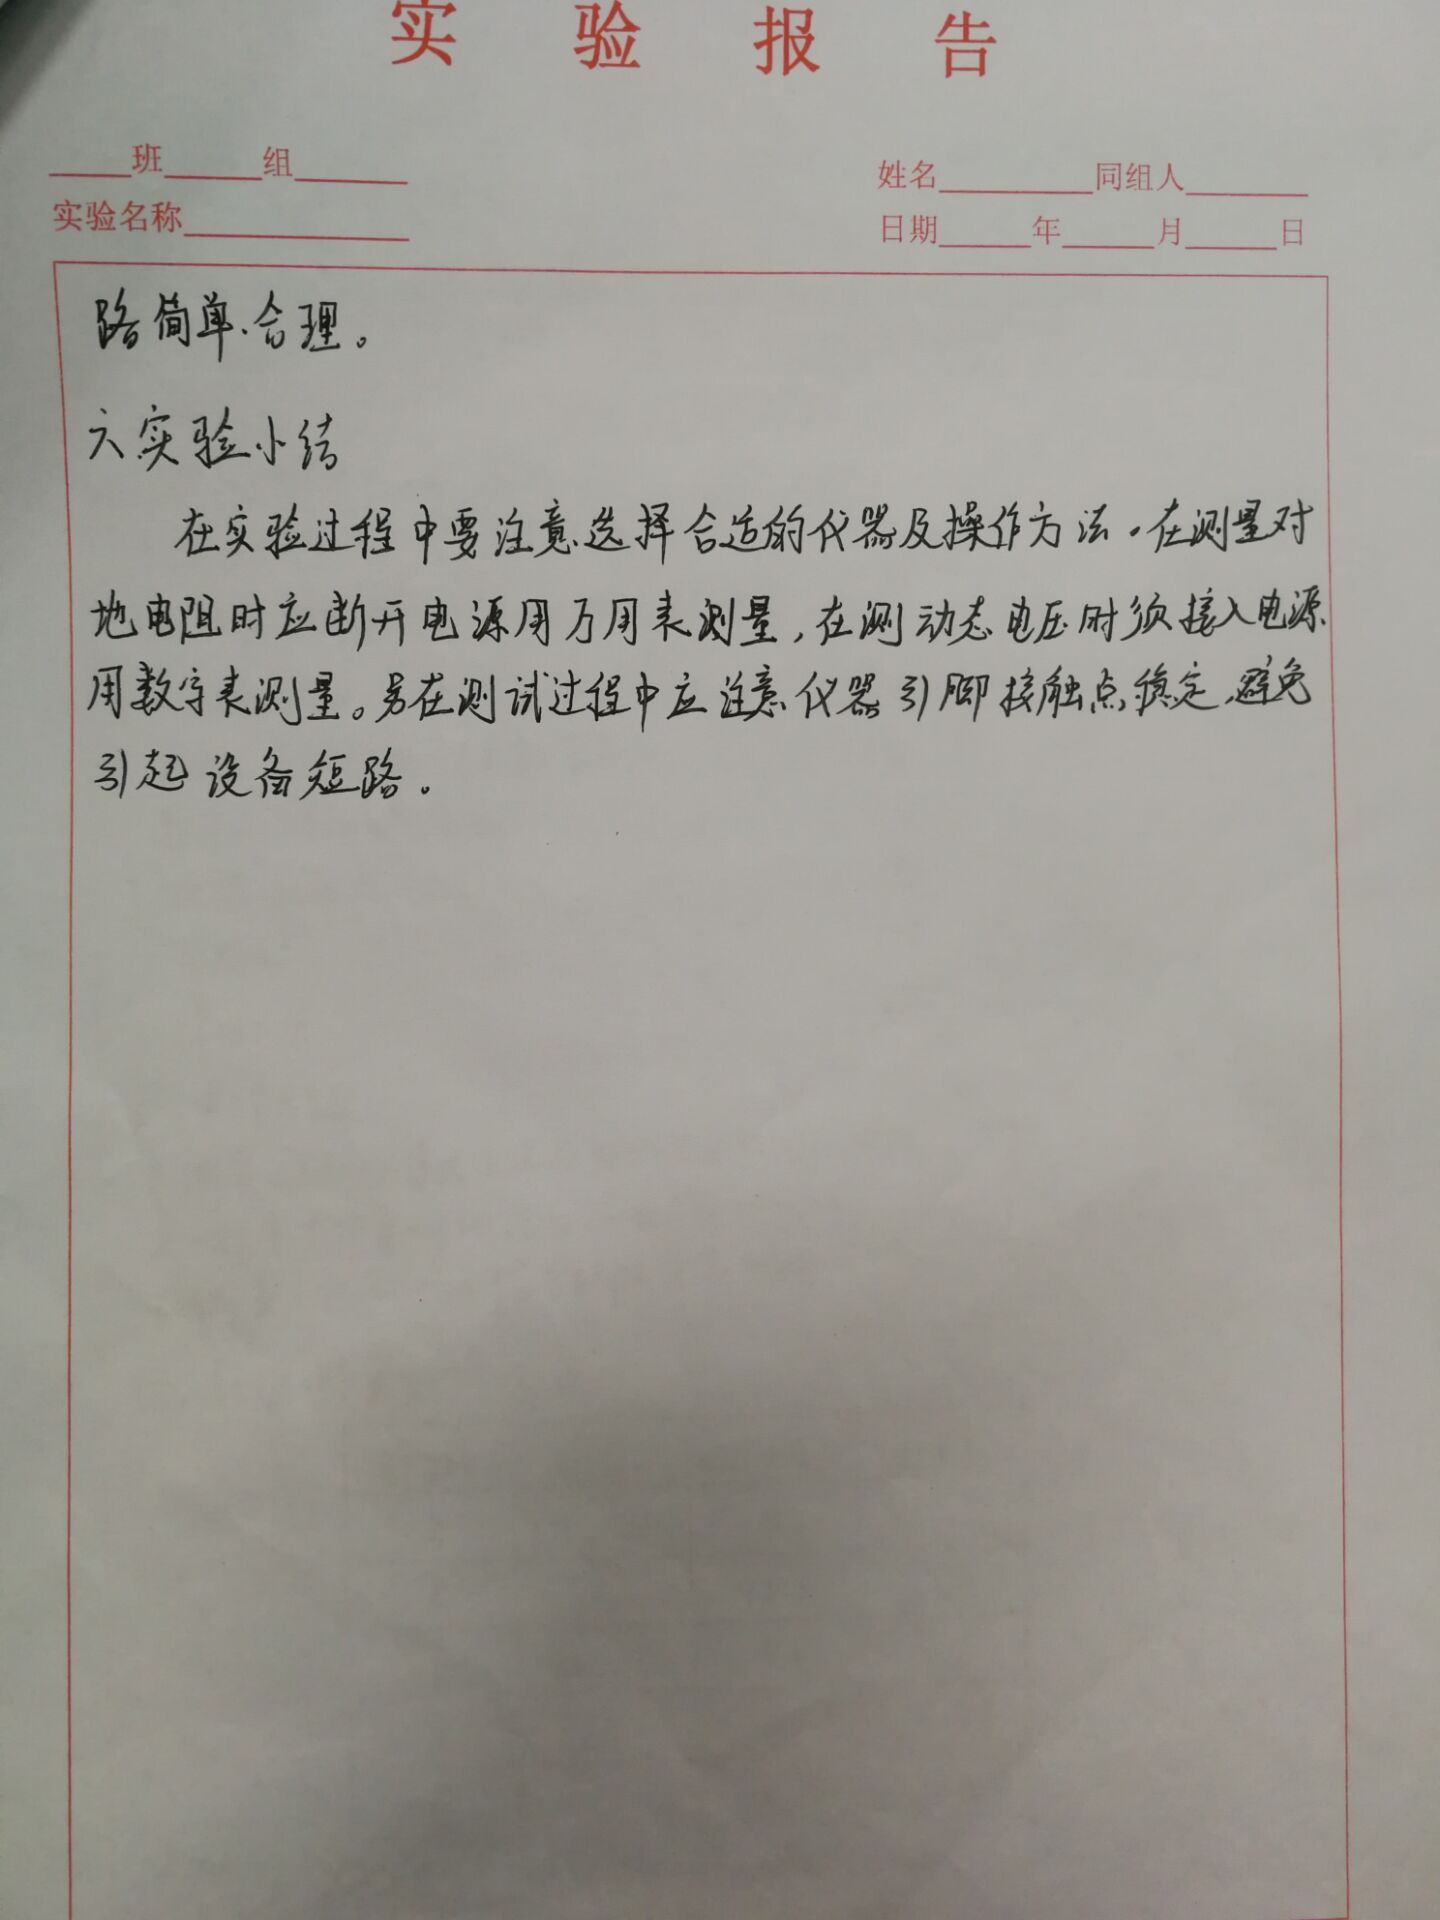 实验报告
____班____组____ 姓名____同组人____
实验名称____ 日期____年____月____日
路简单、合理。
六实验小结
在实验过程中要注意选择合适的仪器及操作方法。在测量对
地电阻时应断开电源用万用表测量，在测动态电压时须接入电源
用数字表测量。另在测试过程中应注意仪器引脚接触点稳定，避免
引起设备短路。